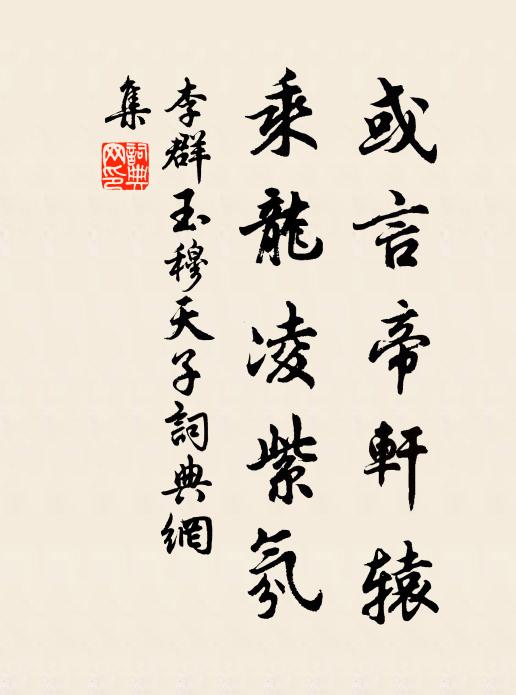 或言帝軒辕
乘龍凌紫氛
李群玉穆天子詞典網
集
詞典網印